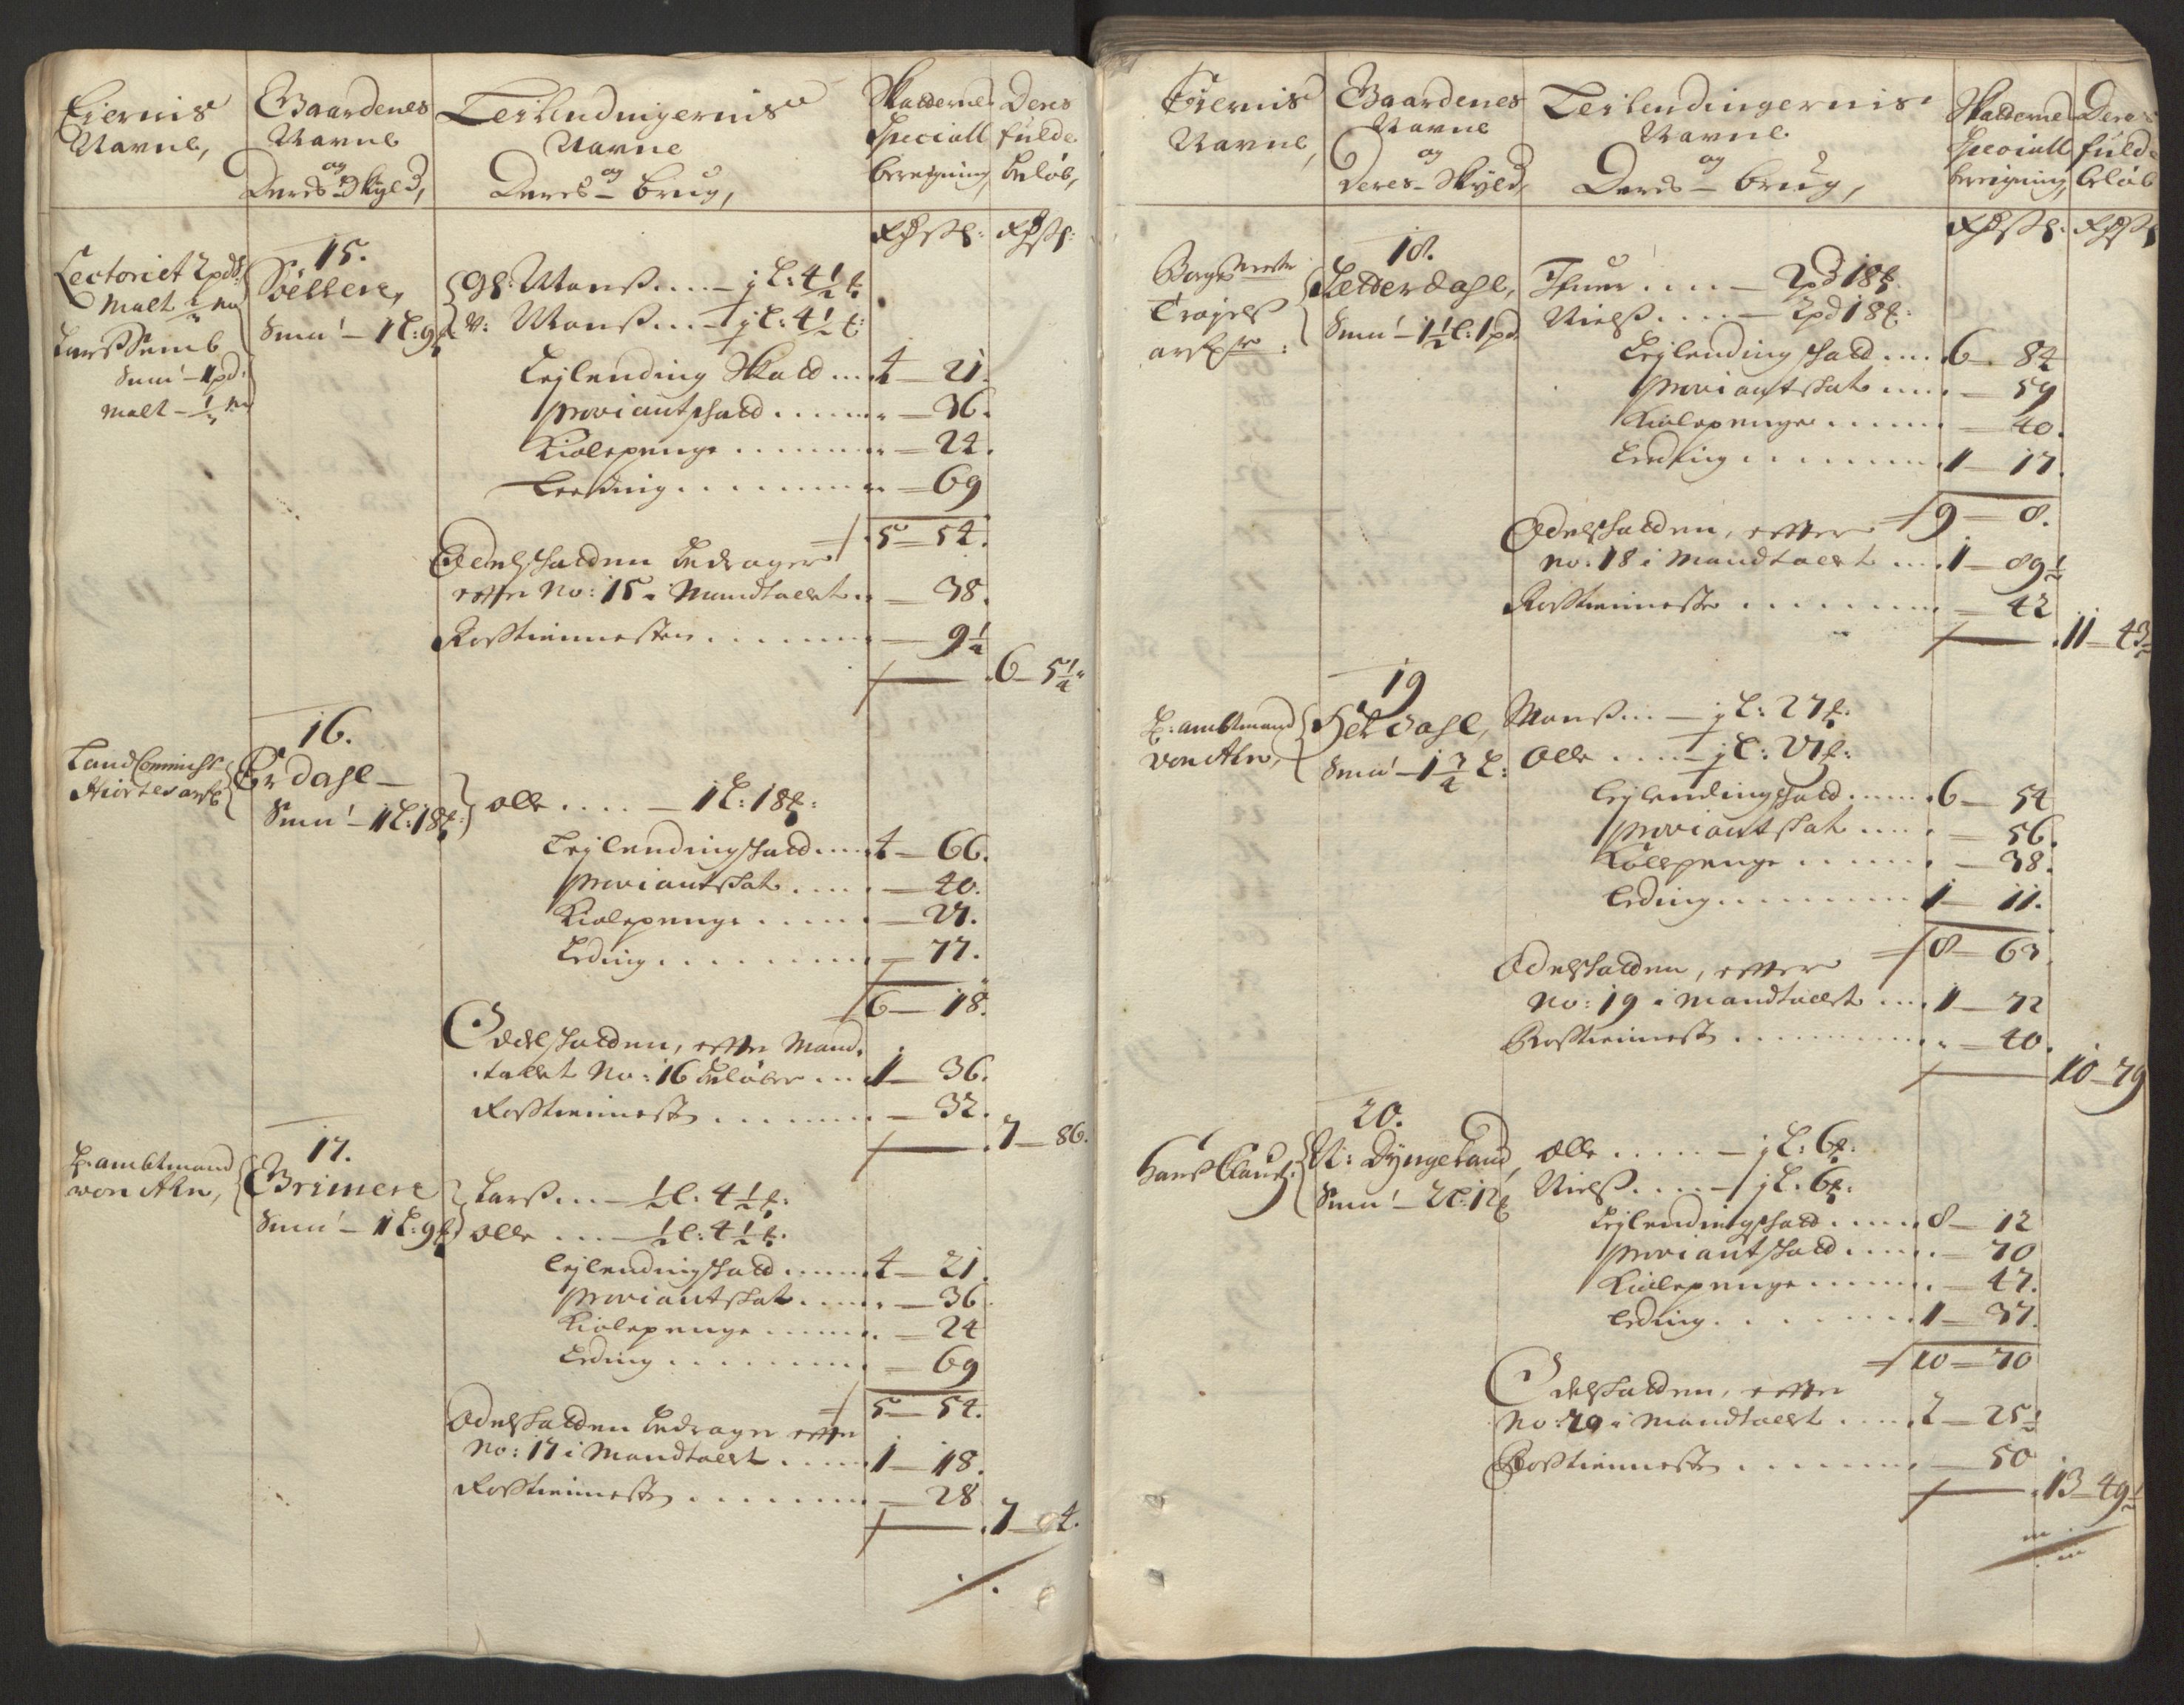 Eiernis
Navne,
Gaardenes
Navne
og
Deres Skyld,
Leilendingernis
Navne
og
Deres – brug,
Skatternes
Speciall
beregning
Deres
fulde
beløb,
Rdr ß: Rdr ß:
15.
Lectoriet 2 pd
Malt
Larss Semb
Smør – 1 pd:
Malt – 1/2
Søltere,
Smør – 1 L: 9
Gl: Monss ... – j L: 4 1/2
V: Monss ... – j L: 4 1/2
Leilending Skatt ... 4 – 21.
Proviantskatt ...... – 36.
Kiølepenge ...... – 24.
Leeding ...... – 69
5 – 54.
Odelskatten bedrager
efter No: 15 i Mandtallet .. – 38.
Rosstienneste ...... – 9 1/4
6 – 5 1/4
16.
Land Commiss
Hiortes arf
Erdahl –
Smør – 1 L: 18
Olle .... – 1 L: 18
Leilendingskatt .... 4 – 66.
Proviantskat .... – 40.
Kiolepenge ..... – 27.
Leding ........ – 77.
6 – 18.
Odelskatten, efter Mand-
tallet No: 16 beløber ... 1 – 36.
Rosstieniest ....... – 32.
7 – 86.
17.
H: ambtmand
von Ahn,
Grimere
Smør – 1 L: 9
Larss ... – 1/2 L: 4 1/2
Olle ... – 1/2 L: 4 1/2
Leilendingskatt ..... 4 – 21.
Proviantskat ..... – 36
Kiolepenge ...... – 24
Leding ........ – 69
5 – 54.
Odelskatten bedrager efter
No: 17 i Mandtallet ..... 1 – 18.
Rosstienniest ....... – 28
7 – 4.
Eiernis
Navne,
Gaardenes
Navne
og
Deres – Skyld,
Leilendingernis
Navne
og
Deres – brug,
Skatterne
Speciall
beregning
Deres
fulde
beløb
Rdr ß: Rdr ß
18.
Borgmester
Trojels
arf
Ledderdahl,
Smør – 1 1/2 L: 1 pd
Ifuer .... – 2 pd 18
Nielss .... – 2 pd 18
Leilending skatt .... 6 – 84
Proviantskat .... – 59
Kiolepenge ...... – 40.
Leeding ....... 1 – 17.
9 – 8.
Odelskatten, efter
No: 18 i Mandtallet ... 1 – 89 1/2
Rosstienneste ....... – 42
11 – 43
19
H: ambtmand
von Ahn,
Heldahl,
Smør – 1 3/4 L:
Monss ... – j L: 27
Olle .... – j L: 27
Leilendingskatt ...... 6 – 54
Proviantskat .... – 56.
Kolepenge ...... – 38.
Leding ........ 1 – 11.
8 – 63.
Odelskatten, efter
No: 19 i Mandtallet .... 1 – 72
Rosstienniest ......... – 40.
10 – 79
20.
Hanss Clauss:
N: Dyngeland
Smør – 2 L: 12
Olle ..... – j L: 6
Nielss .... – j L: 6
Leilendingskatt ..... 8 – 12
Proviantskatt ..... – 70
Kiolepenge ...... – 47.
Leding ........ 1 – 37.
10 – 70
Odelskatten, efter
No: 20 i Mandtallet .... 2 – 25 1/2
Rosstienneste ....... – 50
13 – 49 1/2